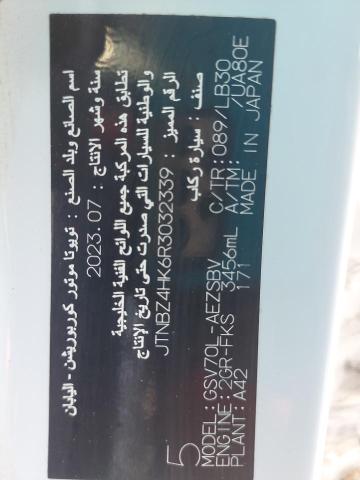 اسم الصانع وبلد الصنع : تويوتا موتور كوربوريشن - اليابان
سنة وشهر الإنتاج : 2023.07
تطابق هذه المركبة جميع اللوائح الفنية الخليجية
والوطنية للسيارات التي صدرت حتى تاريخ الإنتاج
الرقم المميز : JTNBZ4HK6R3032339
صنف : سيارة ركاب
5
MODEL:GSV70L-AEZSBV C/TR:089/LB30
ENGINE:2GR-FKS 3456mL A/TM: /UA80E
PLANT:A42 171 MADE IN JAPAN